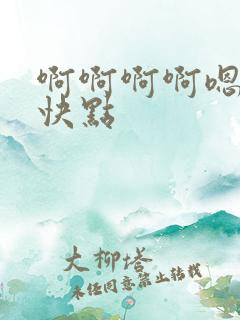 啊啊啊啊嗯
快點
大柳塔
未经同意禁止转载